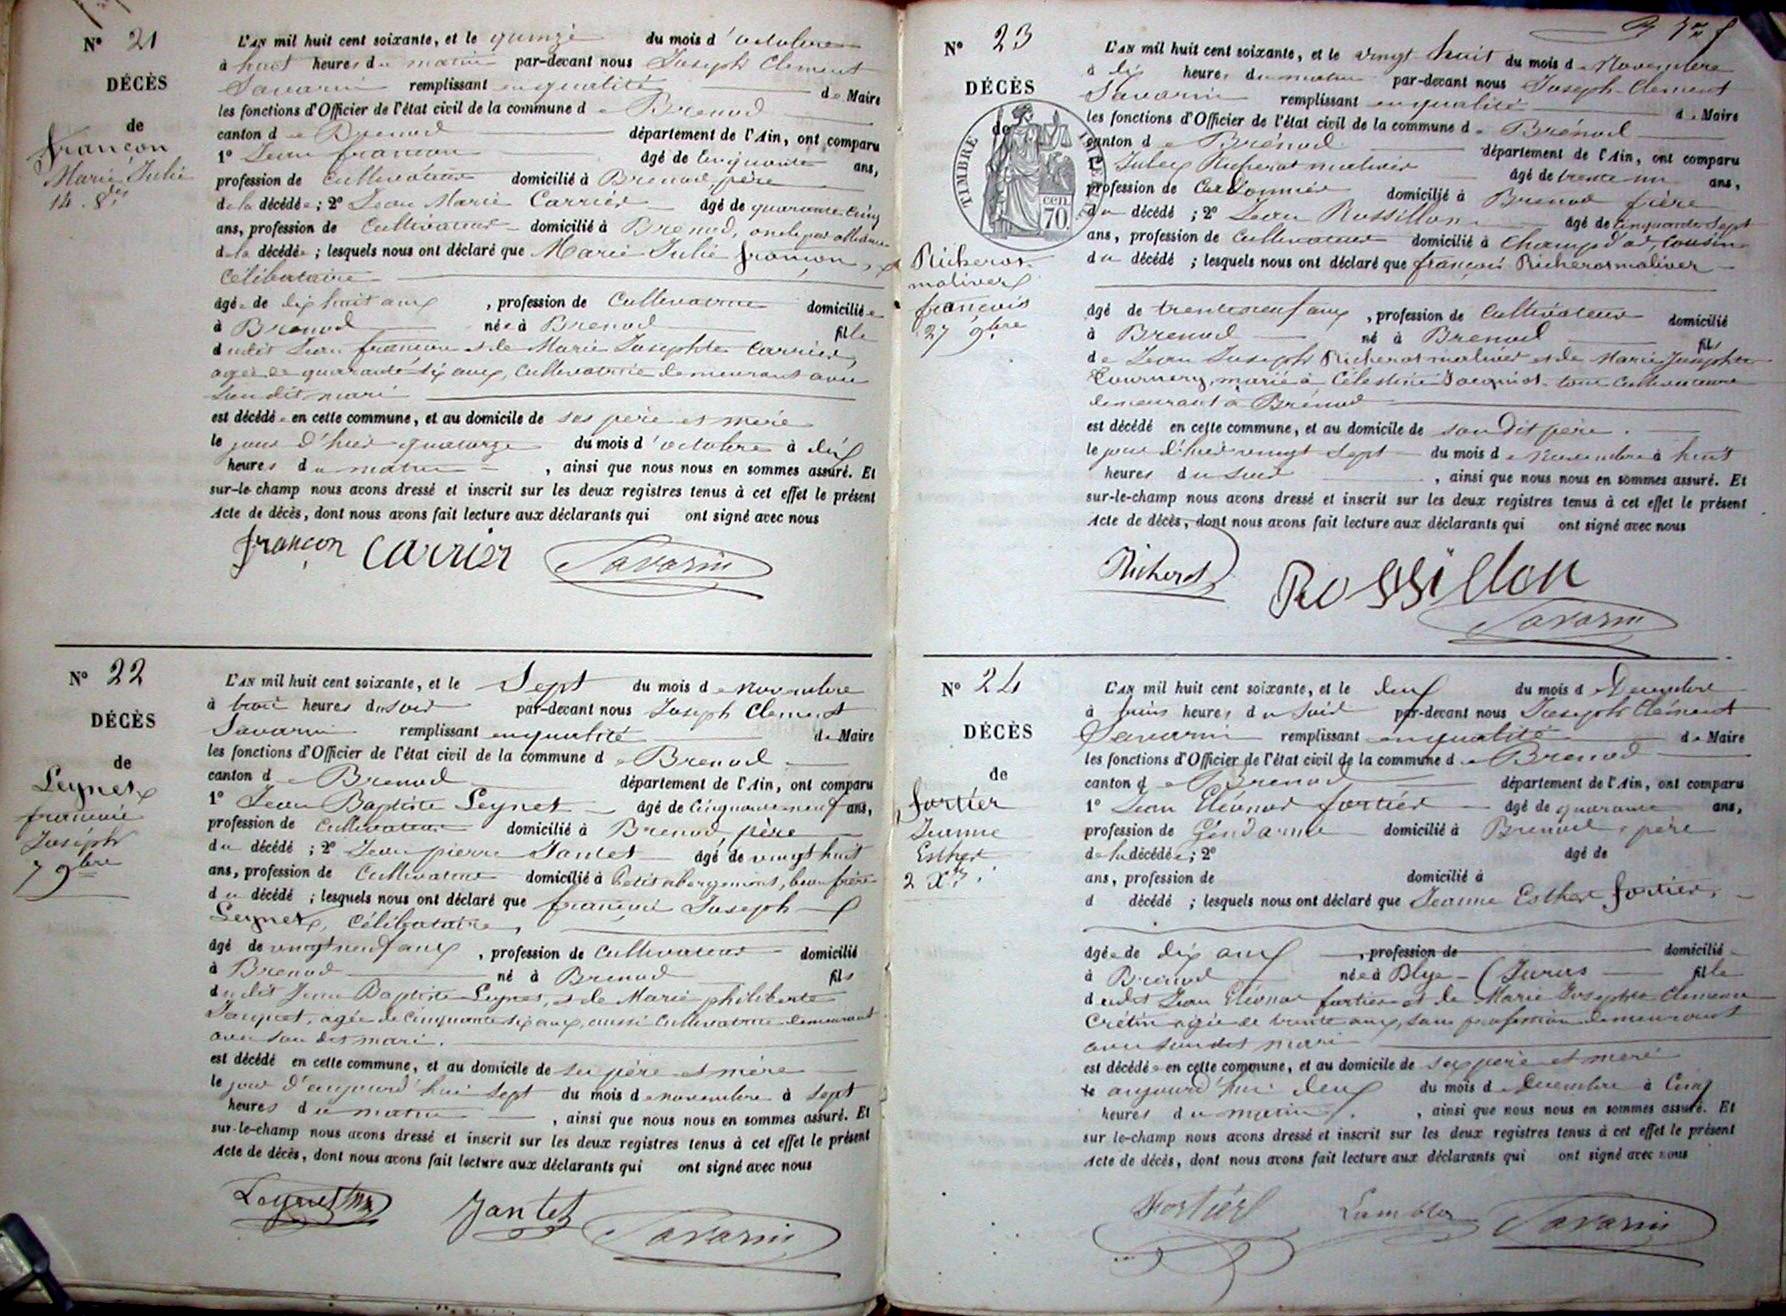 N° 21
DÉCÈS
de
françon
Marie Julie
14 8bre
L'AN mil huit cent soixante, et le quinze du mois d'octobre
à huit heures du matin par-devant nous Joseph Clement
Savarin remplissant en qualité de Maire
les fonctions d'Officier de l'état civil de la commune de Brenod
canton de Brenod département de l'Ain, ont comparu
1° Jean françon âgé de cinquante ans,
profession de Cultivateur domicilié à Brenod, père
de la décédée ; 2° Jean Marie Carrier âgé de quarante cinq
ans, profession de Cultivateur domicilié à Brenod, oncle par alliance
de la décédée ; lesquels nous ont déclaré que Marie Julie françon,
célibataire
âgée de dix huit ans, profession de Cultivatrice domiciliée
à Brenod née à Brenod fille
dudit Jean françon et de Marie Josephte Carrier,
agée de quarante six ans, cultivatrice demeurant avec
son dit mari
est décédée en cette commune, et au domicile de ses père et mère
le jour d'hier quatorze du mois d'octobre à dix
heures du matin, ainsi que nous nous en sommes assuré. Et
sur-le-champ nous avons dressé et inscrit sur les deux registres tenus à cet effet le présent
Acte de décès, dont nous avons fait lecture aux déclarants qui ont signé avec nous
françon Carrier Savarin
N° 22
DÉCÈS
de
Leynet
francois
Joseph
7 9bre
L'AN mil huit cent soixante, et le Sept du mois de novembre
à trois heures du soir par-devant nous Joseph Clement
Savarin remplissant en qualité de Maire
les fonctions d'Officier de l'état civil de la commune de Brenod
canton de Brenod département de l'Ain, ont comparu
1° Jean Baptiste Leynet âgé de cinquante neuf ans,
profession de Cultivateur domicilié à Brenod, père
du décédé ; 2° Jean pierre Jantet âgé de vingt huit
ans, profession de Cultivateur domicilié à Petit abergement, beau frère
du décédé ; lesquels nous ont déclaré que françois Joseph
Leynet, célibataire,
âgé de vingt neuf ans, profession de Cultivateur domicilié
à Brenod né à Brenod fils
dudit Jean Baptiste Leynet, et de Marie philiberte
Jacquet, agée de cinquante six ans, aussi Cultivatrice demeurant
avec son dit mari.
est décédé en cette commune, et au domicile de ses père et mère
le jour d'aujourd'hui sept du mois de novembre à sept
heures du matin, ainsi que nous nous en sommes assuré. Et
sur-le-champ nous avons dressé et inscrit sur les deux registres tenus à cet effet le présent
Acte de décès, dont nous avons fait lecture aux déclarants qui ont signé avec nous
Leynet Jantet Savarin
N° 23
DÉCÈS
de
TIMBRE
cen
70.
Richerot
molivier
françois
27 9bre
L'AN mil huit cent soixante, et le vingt huit du mois de Novembre
à dix heures du matin par-devant nous Joseph Clement
Savarin remplissant en qualité de Maire
les fonctions d'Officier de l'état civil de la commune de Brénod
canton de Brénod département de l'Ain, ont comparu
Richerot molivier âgé de trente un ans,
profession de Cordonnier domicilié à Brenod frère
du décédé ; 2° Jean Rossillon âgé de cinquante sept
ans, profession de Cultivateur domicilié à Champdor, cousin
du décédé ; lesquels nous ont déclaré que françois Richerot molivier
âgé de trente neuf ans, profession de Cultivateur domicilié
à Brenod né à Brenod fils
de Jean Joseph Richerot molivier et de Marie Josephte
Tournery, marié à Célestine Jacquiot tous cultivateurs
demeurant à Brénod
est décédé en cette commune, et au domicile de son dit père.
le jour d'hier vingt sept du mois de novembre à huit
heures du soir, ainsi que nous nous en sommes assuré. Et
sur-le-champ nous avons dressé et inscrit sur les deux registres tenus à cet effet le présent
Acte de décès, dont nous avons fait lecture aux déclarants qui ont signé avec nous
Richerot Rossillon
Savarin
N° 24
DÉCÈS
de
fortier
Jeanne
Esther
2 Xbre
L'AN mil huit cent soixante, et le deux du mois de Decembre
à trois heures du soir par-devant nous Joseph Clément
Savarin remplissant en qualité de Maire
les fonctions d'Officier de l'état civil de la commune de Brenod
canton de Brenod département de l'Ain, ont comparu
1° Jean Eléonor fortier âgé de quarante ans,
profession de Gendarme domicilié à Brenod, père
de la décédée ; 2° âgé de
ans, profession de domicilié à
d décédé ; lesquels nous ont déclaré que Jeanne Esther fortier,
âgée de dix ans, profession de domicilié
à Brenod née à Blye (Jura) fille
dudit Jean Eléonor fortier et de Marie Josephte Clemence
Crétin agée de trente ans, sans profession demeurant
avec sondit mari
est décédée en cette commune, et au domicile de ses père et mère
le aujourd'hui deux du mois de Decembre à cinq
heures du matin, ainsi que nous nous en sommes assuré. Et
sur le-champ nous avons dressé et inscrit sur les deux registres tenus à cet effet le présent
Acte de décès, dont nous avons fait lecture aux déclarants qui ont signé avec nous
Fortier Savarin